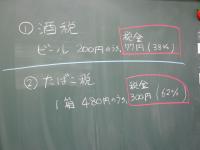 ① 酒税
ビール 200円のうち、 税金 77円 (38%)
② たばこ税
1箱 480円のうち、 税金 300円 (62%)